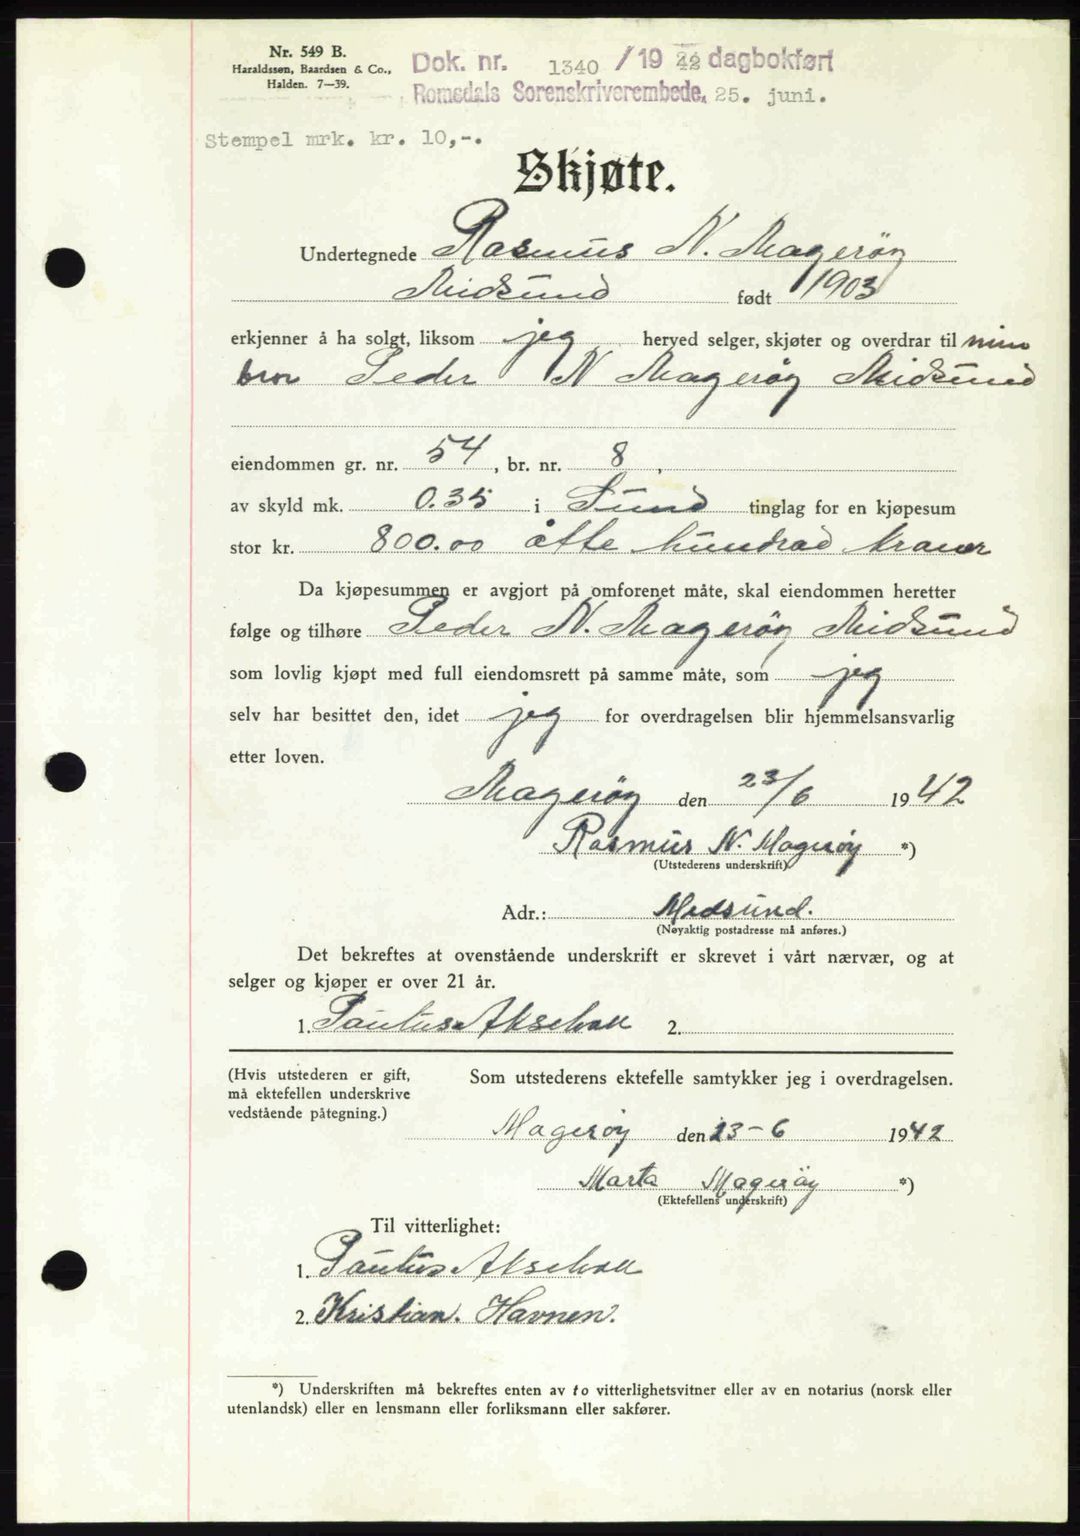 Nr. 549 B.
Haraldssøn, Baardsen & Co.,
Halden. 7—39.
Dok. nr. 1340 / 19 42 dagbokført
Romsdals Sorenskriverembede, 25. juni.
Stempel mrk. kr. 10,-.
Skjøte.
Undertegnede Rasmus N. Magerøy
Midsund født 1903
erkjenner å ha solgt, liksom jeg herved selger, skjøter og overdrar til min
bror Peder N Magerøy Midsund
eiendommen gr. nr. 54, br. nr. 8,
av skyld mk. 0.35 i Sund tinglag for en kjøpesum
stor kr. 800.00 åtte hundrad kroner
Da kjøpesummen er avgjort på omforenet måte, skal eiendommen heretter
følge og tilhøre Peder N. Magerøy Midsund
som lovlig kjøpt med full eiendomsrett på samme måte, som jeg
selv har besittet den, idet jeg for overdragelsen blir hjemmelsansvarlig
etter loven.
Magerøy den 23/6 1942
Rasmus N. Magerøy *)
(Utstederens underskrift)
Adr.: Midsund.
(Nøyaktig postadresse må anføres.)
Det bekreftes at ovenstående underskrift er skrevet i vårt nærvær, og at
selger og kjøper er over 21 år.
1. 2.
(Hvis utstederen er gift,
må ektefellen underskrive
vedstående påtegning.)
Som utstederens ektefelle samtykker jeg i overdragelsen.
Magerøy den 23-6 1942
Marta Magerøy *)
(Ektefellens underskrift)
Til vitterlighet:
1.
2. Kristian. Havnen.
*) Underskriften må bekreftes enten av to vitterlighetsvitner eller av en notarius (norsk eller
utenlandsk) eller en lensmann eller forliksmann eller sakfører.